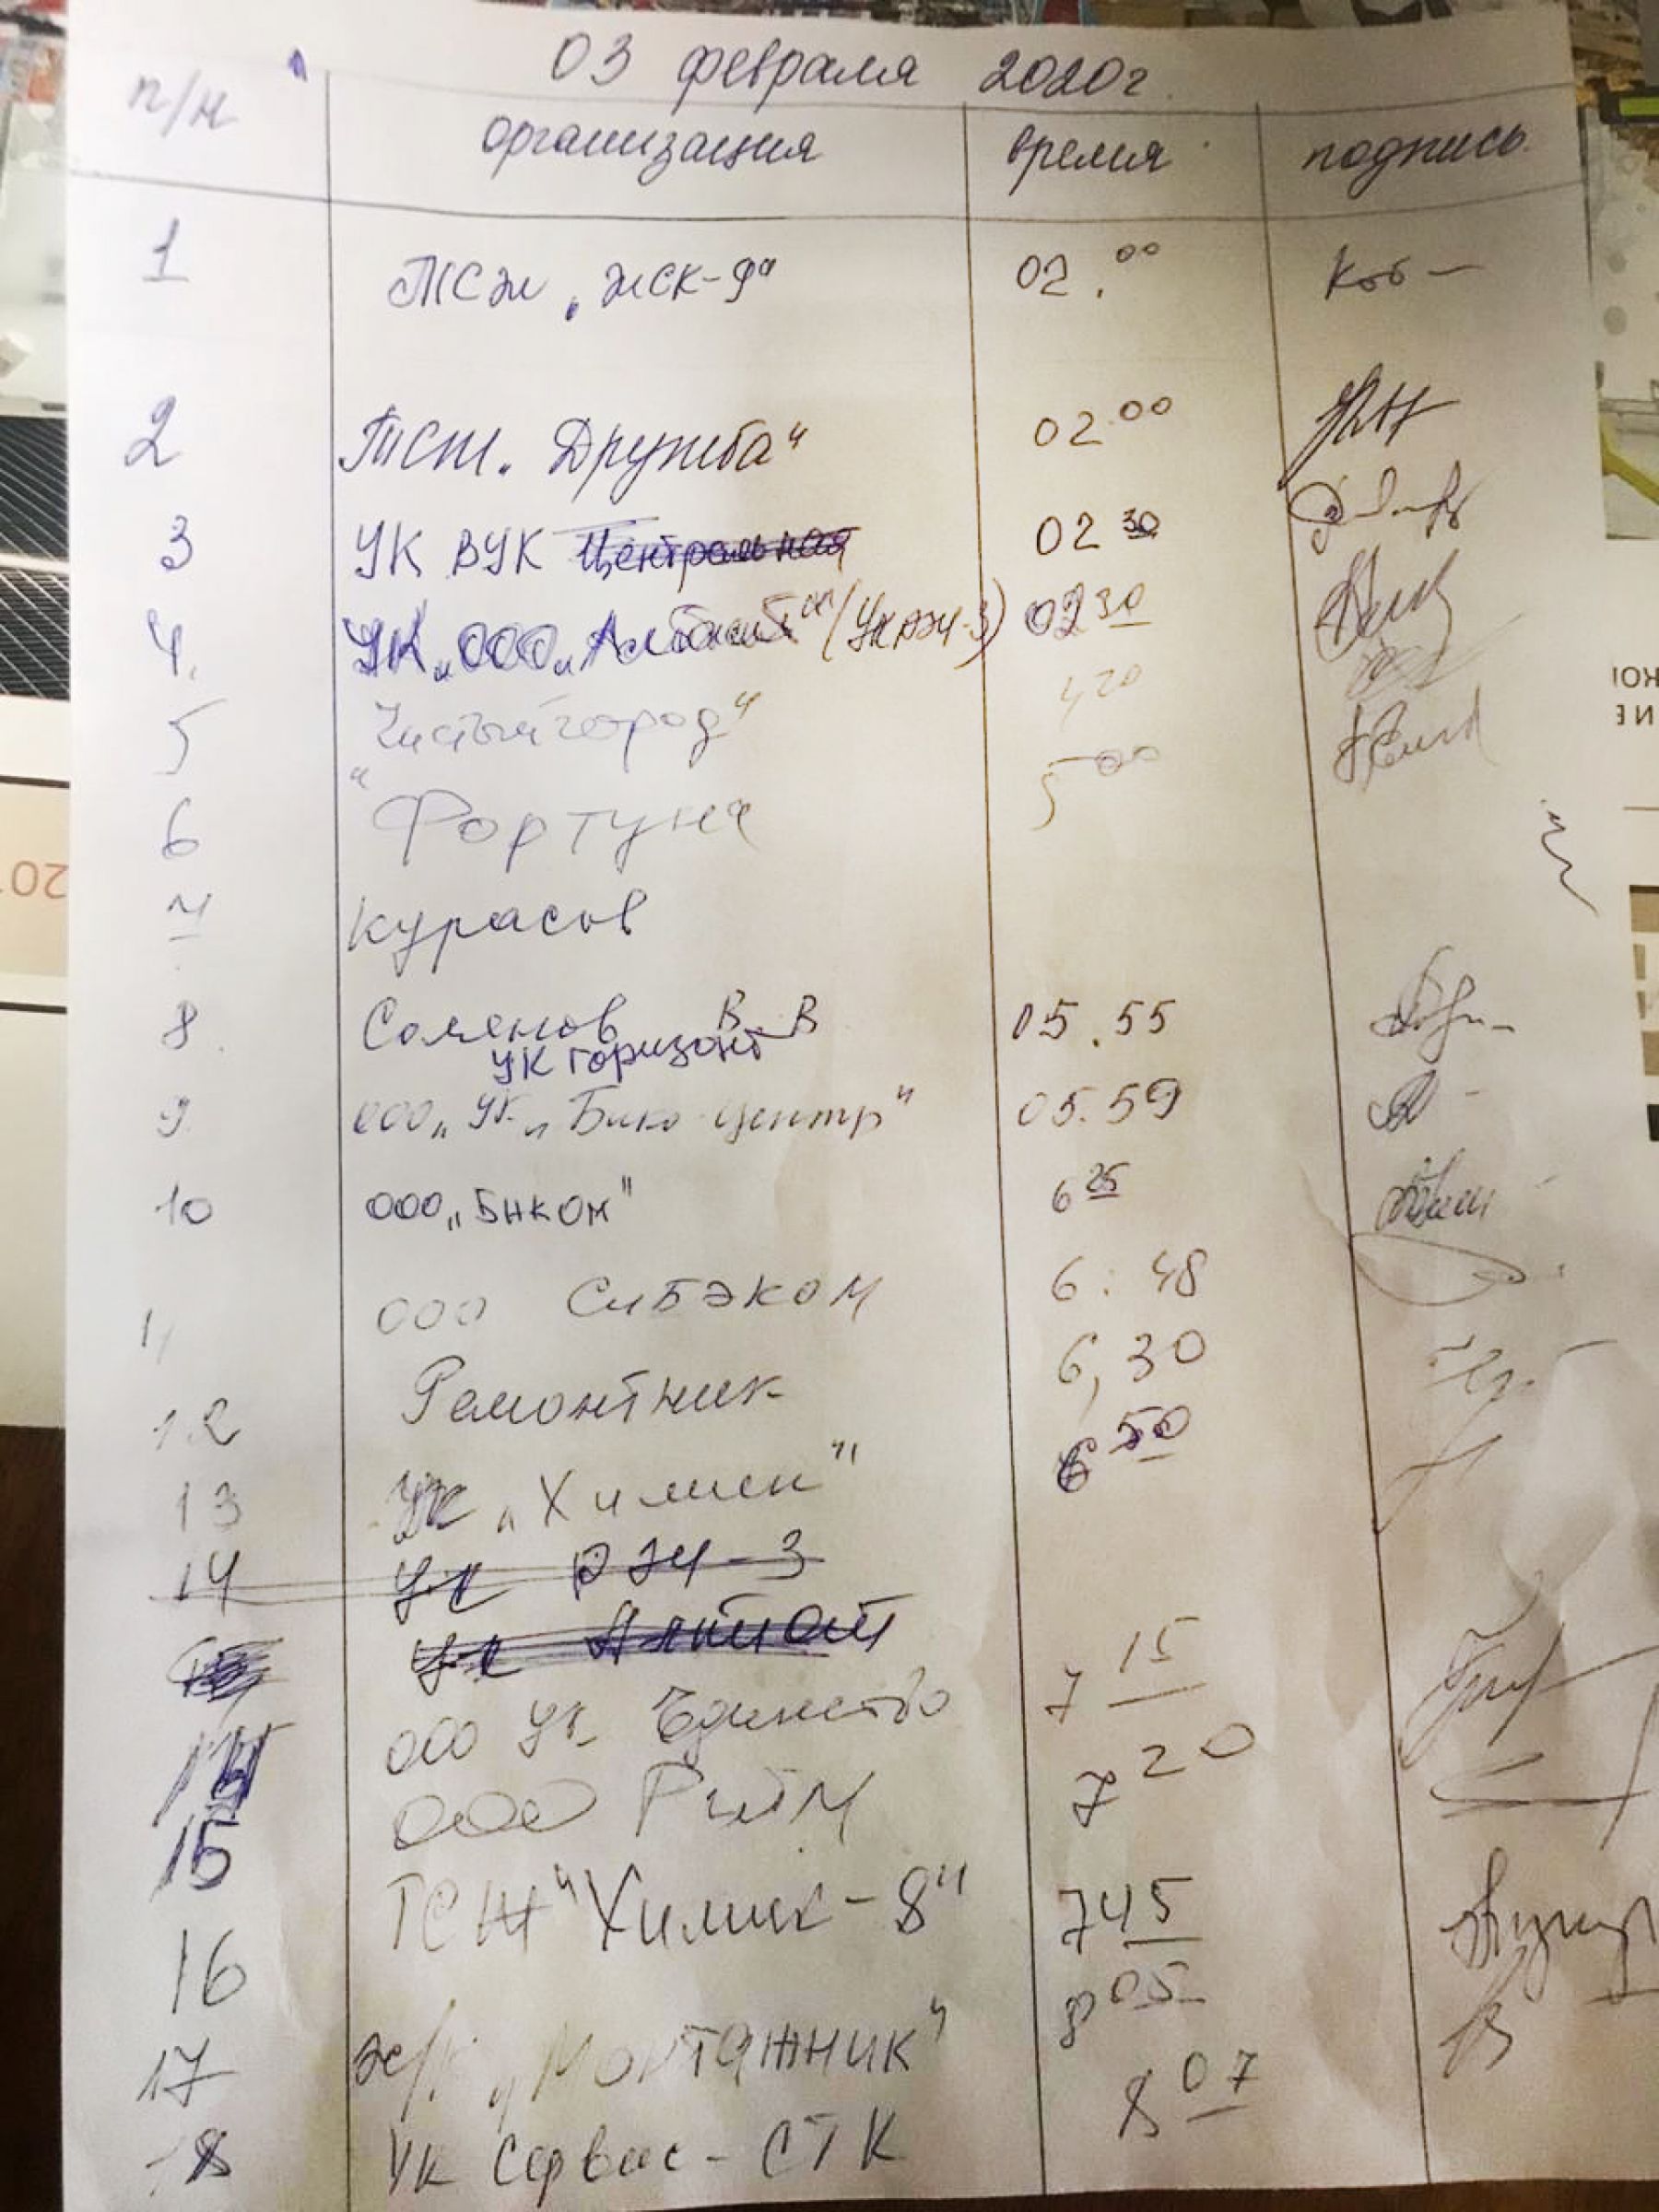 03 февраля 2020г.
п/н организация время подпись
1 ТСЖ „ЖСК-9" 02.00
2 ТСЖ „Дружба" 02.00
3 УК ВУК Центральная 02 30
4. УК „ООО „ (УК РЭУ-3) 02 30
5 Чистый город" 4 20
6 "Фортуна 5 00
7 Курасов
8. Соменов В. В 05.55
УК Горизонт
9. ООО „УК „ центр" 05.59
10 ООО „БИКОМ" 6 25
11 ООО СиБЭКОМ 6:48
12 Ремонтник 6,30
13 УК „Химик" 6 50
14 УК РЭУ-3
УК
14 ООО УК Единство 7 15
15 ООО Ритм 7 20
16 ТСЖ "Химик-8" 7 45
17 ж/к „Монтажник" 8 05
18 УК Сервис-СТК 8 07